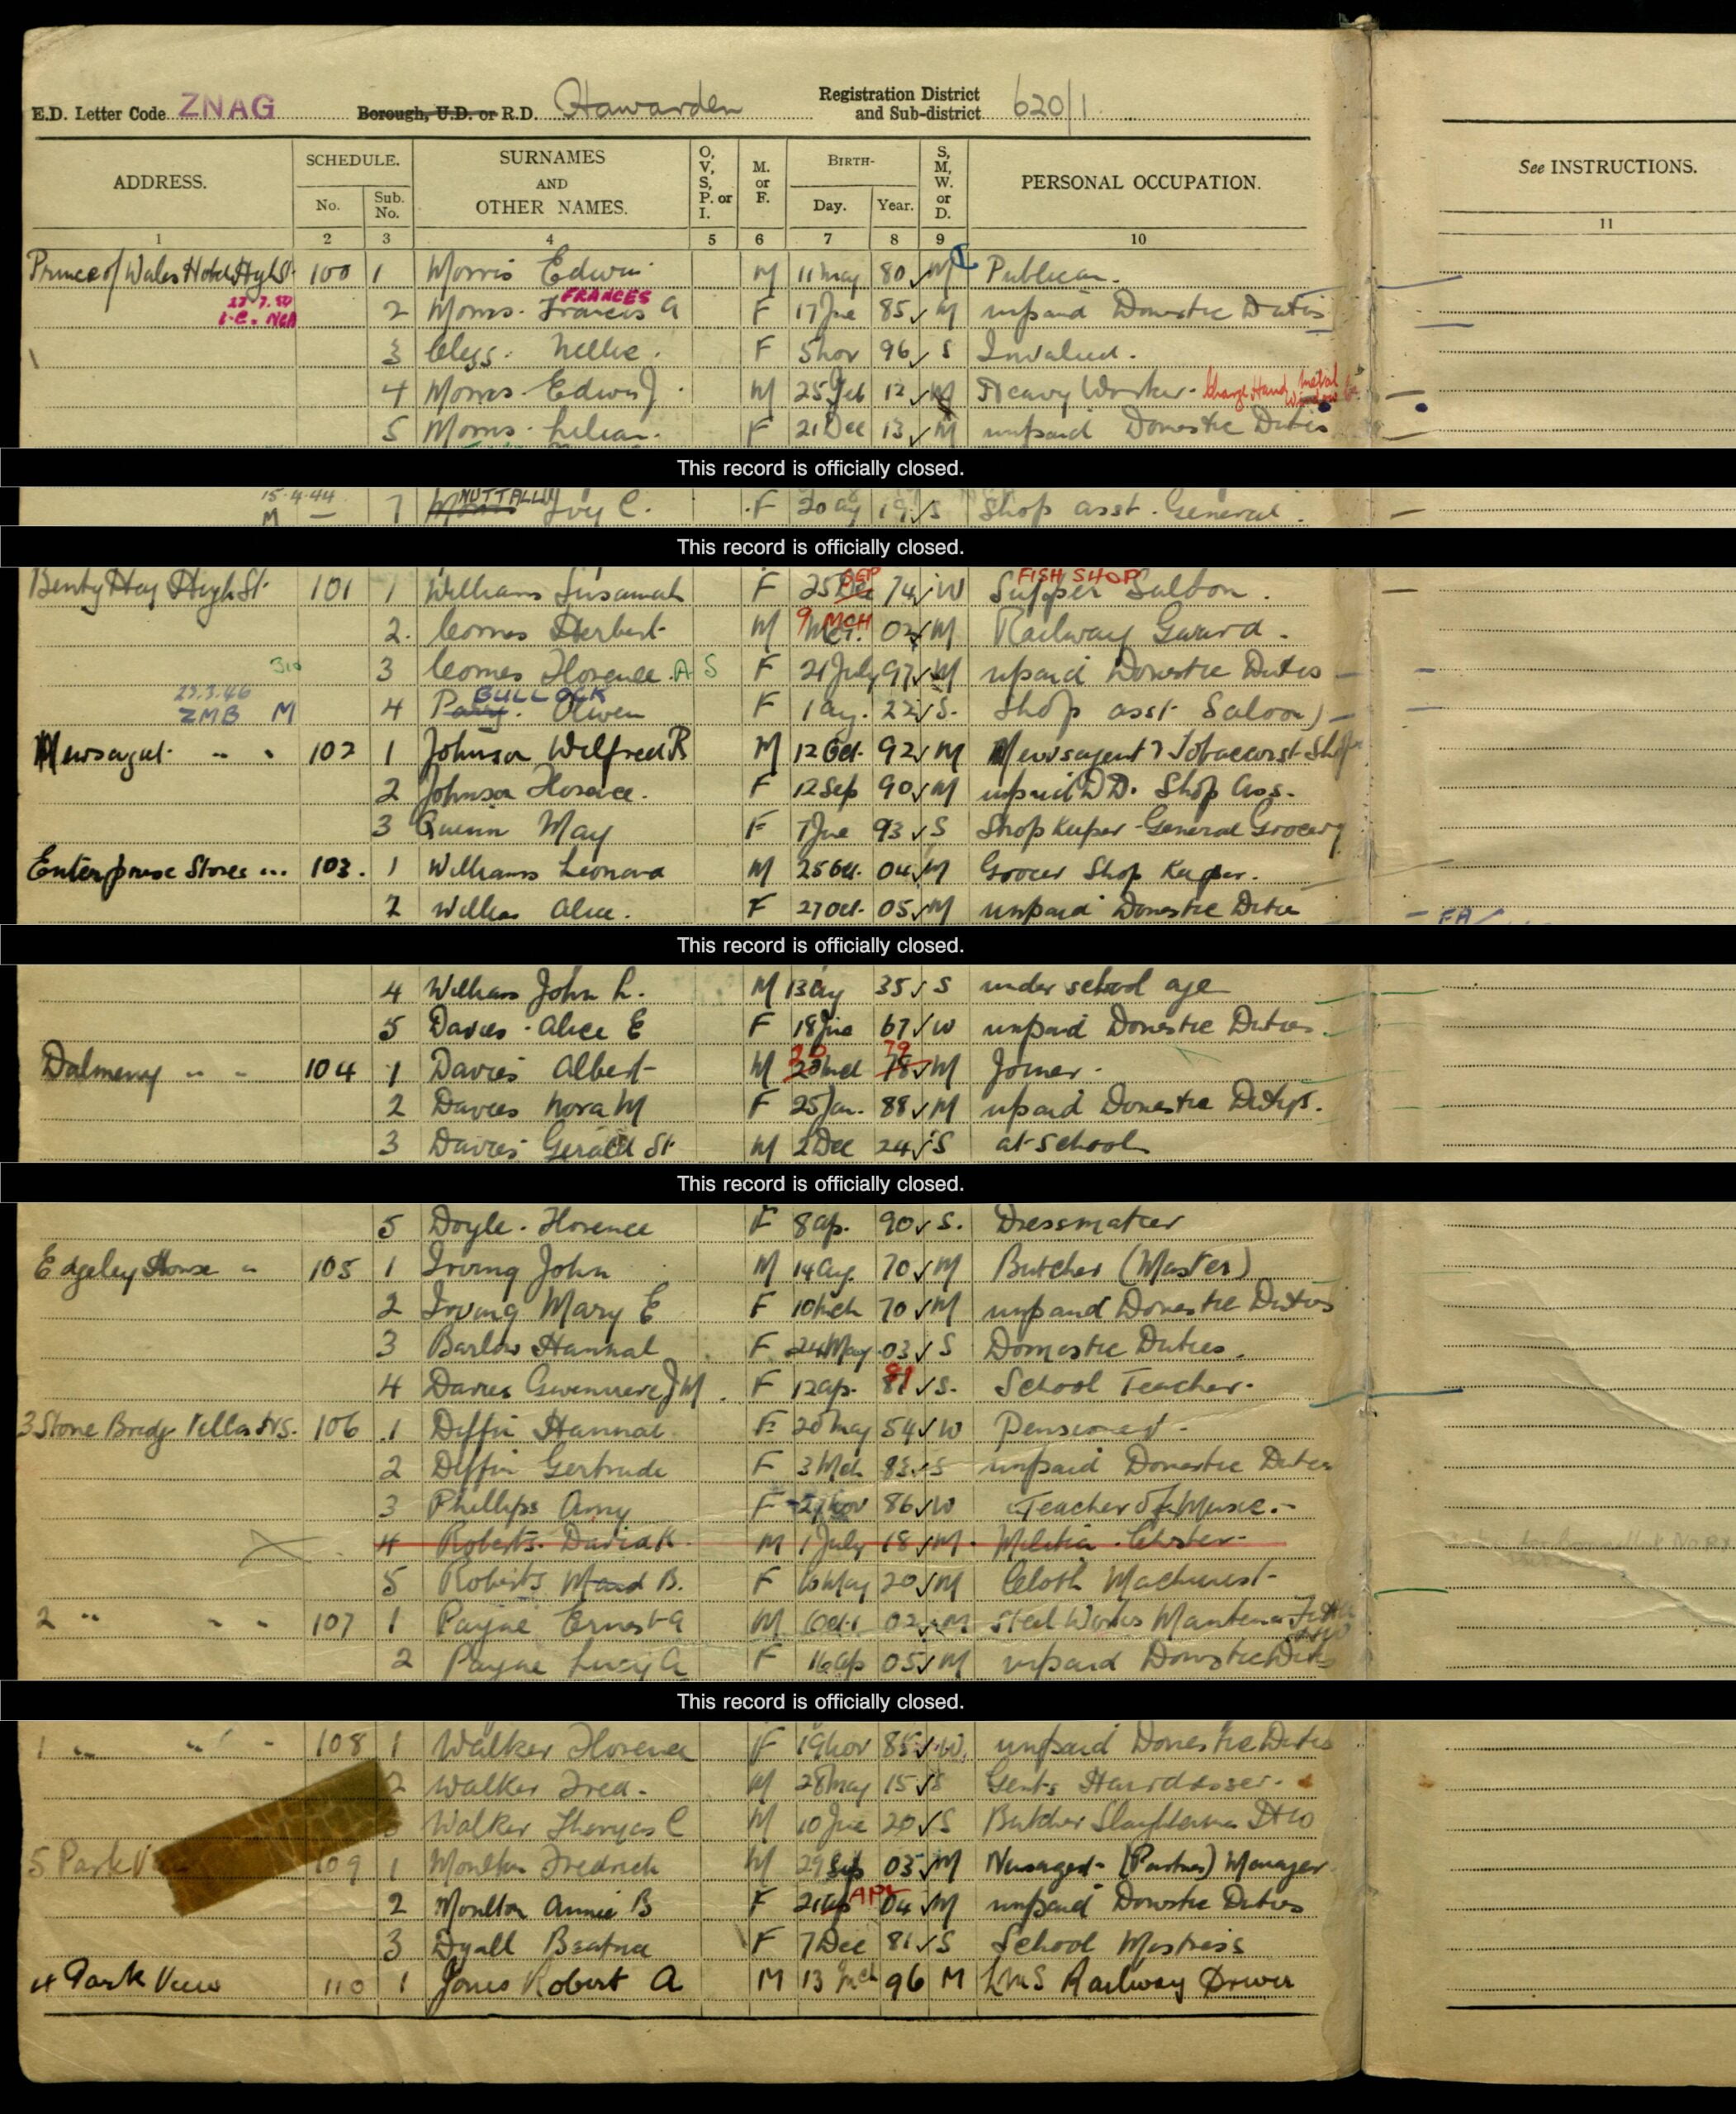 E.D. Letter Code ZNAG Borough, U.D. or R.D. Hawarden Registration District and Sub-district 620/1
ADDRESS. SCHEDULE. No. Sub. No. SURNAMES AND OTHER NAMES. O, V, S, P. or I. M. or F. BIRTH- Day. Year. S, M, W. or D. PERSONAL OCCUPATION. See INSTRUCTIONS.
1 2 3 4 5 6 7 8 9 10 11
Prince of Wales Hotel High St. 100 1 Morris Edwin M 11 May 80 M Publican.
FRANCES
2 Morris. Francis A F 17 Jne 85 M unpaid Domestic Duties
3 Clegg. Nellie. F 5 Nov 96 S Invalid.
4 Morris Edwin J. M 25 Feb 12 M Heavy Worker. Charge Hand Metal Window
5 Morris. Lilian. F 21 Dec 13 M unpaid Domestic Duties
This record is officially closed.
15.4.44 NUTTALL
M 7 Ivy C. F 20 Ag 19 S Shop asst. General.
This record is officially closed.
SEP FISH SHOP
High St. 101 1 Williams Susannah F 25 Dec 74 W Supper Saloon.
9 MCH
2. Comes Herbert M Oct. 02 M Railway Guard.
3 Comes Florence. A S F 21 July 97 M unpaid Domestic Duties
23.3.46 BULLOCK
ZMB M 4 Parry. Olwen F 1 Ag. 22 S. Shop asst. Saloon)
Newsagent " " 102 1 Johnson Wilfred R M 12 Oct. 92 M Newsagent & Tobacconist Shop
2 Johnson Florence. F 12 Sep 90 M unpaid D.D. Shop Ass.
3 Quinn May F 7 Jne 93 S Shop Keeper - General Grocery
Enterprise Stores " 103. 1 Williams Leonard M 25 Oct. 04 M Grocer Shop Keeper.
2 Williams Alice. F 27 Oct. 05 M unpaid Domestic Duties
This record is officially closed.
4 Williams John L. M 13 Ag 35 S under school age
5 Davies - Alice E F 18 Jne 67 W unpaid Domestic Duties
20 79
Dalmeny " " 104 1 Davies Albert M Mch 78 M Joiner.
2 Davies Nora M F 25 Jan. 88 M unpaid Domestic Dutys.
3 Davies Gerald St M 2 Dec 24 S at School
This record is officially closed.
5 Doyle. Florence F 8 Ap. 90 S. Dressmaker
Edgeley House " 105 1 Irving John M 14 Aug. 70 M Butcher (Master)
2 Irving Mary E F 10 Mch 70 M unpaid Domestic Duties
3 Barlow Hannah F 24 May 03 S Domestic Duties.
4 Davies J M F 12 Ap. 81 S. School Teacher.
3 Stone Bridge Villas H.S. 106 1 Diffin Hannah F 20 May 54 W Pensioner.
2 Diffin Gertrude F 3 Mch 83 S unpaid Domestic Duties
3 Phillips Amy F 2 Nov 86 W Teacher of Music.
4 Roberts. David K. M 1 July 18 M. Militia. Chester.
5 Roberts Maud B. F 10 May 20 M Cloth Machinist
2 " " " 107 1 Payne Ernest A M Oct. 02 M Steel Works
2 Payne Lucy A F 16 Ap 05 M unpaid Domestic Duties
This record is officially closed.
1 " " " 108 1 Walker Florence F 19 Nov W. unpaid Domestic Duties
2 Walker Fred. M 28 May 15 S Gents Hairdresser.
Walker Thomas C M 10 Jne 20 S Butcher
5 Park 109 1 Moulton Fredrich M 29 Sep 03 M (Partner) Manager
APL
2 Moulton Annie B F 21 04 M unpaid Domestic Duties
3 Dyall Beatrice F 7 Dec 81 S School Mistress
4 Park View 110 1 Jones Robert A M 13 Mch 96 M LMS Railway Driver